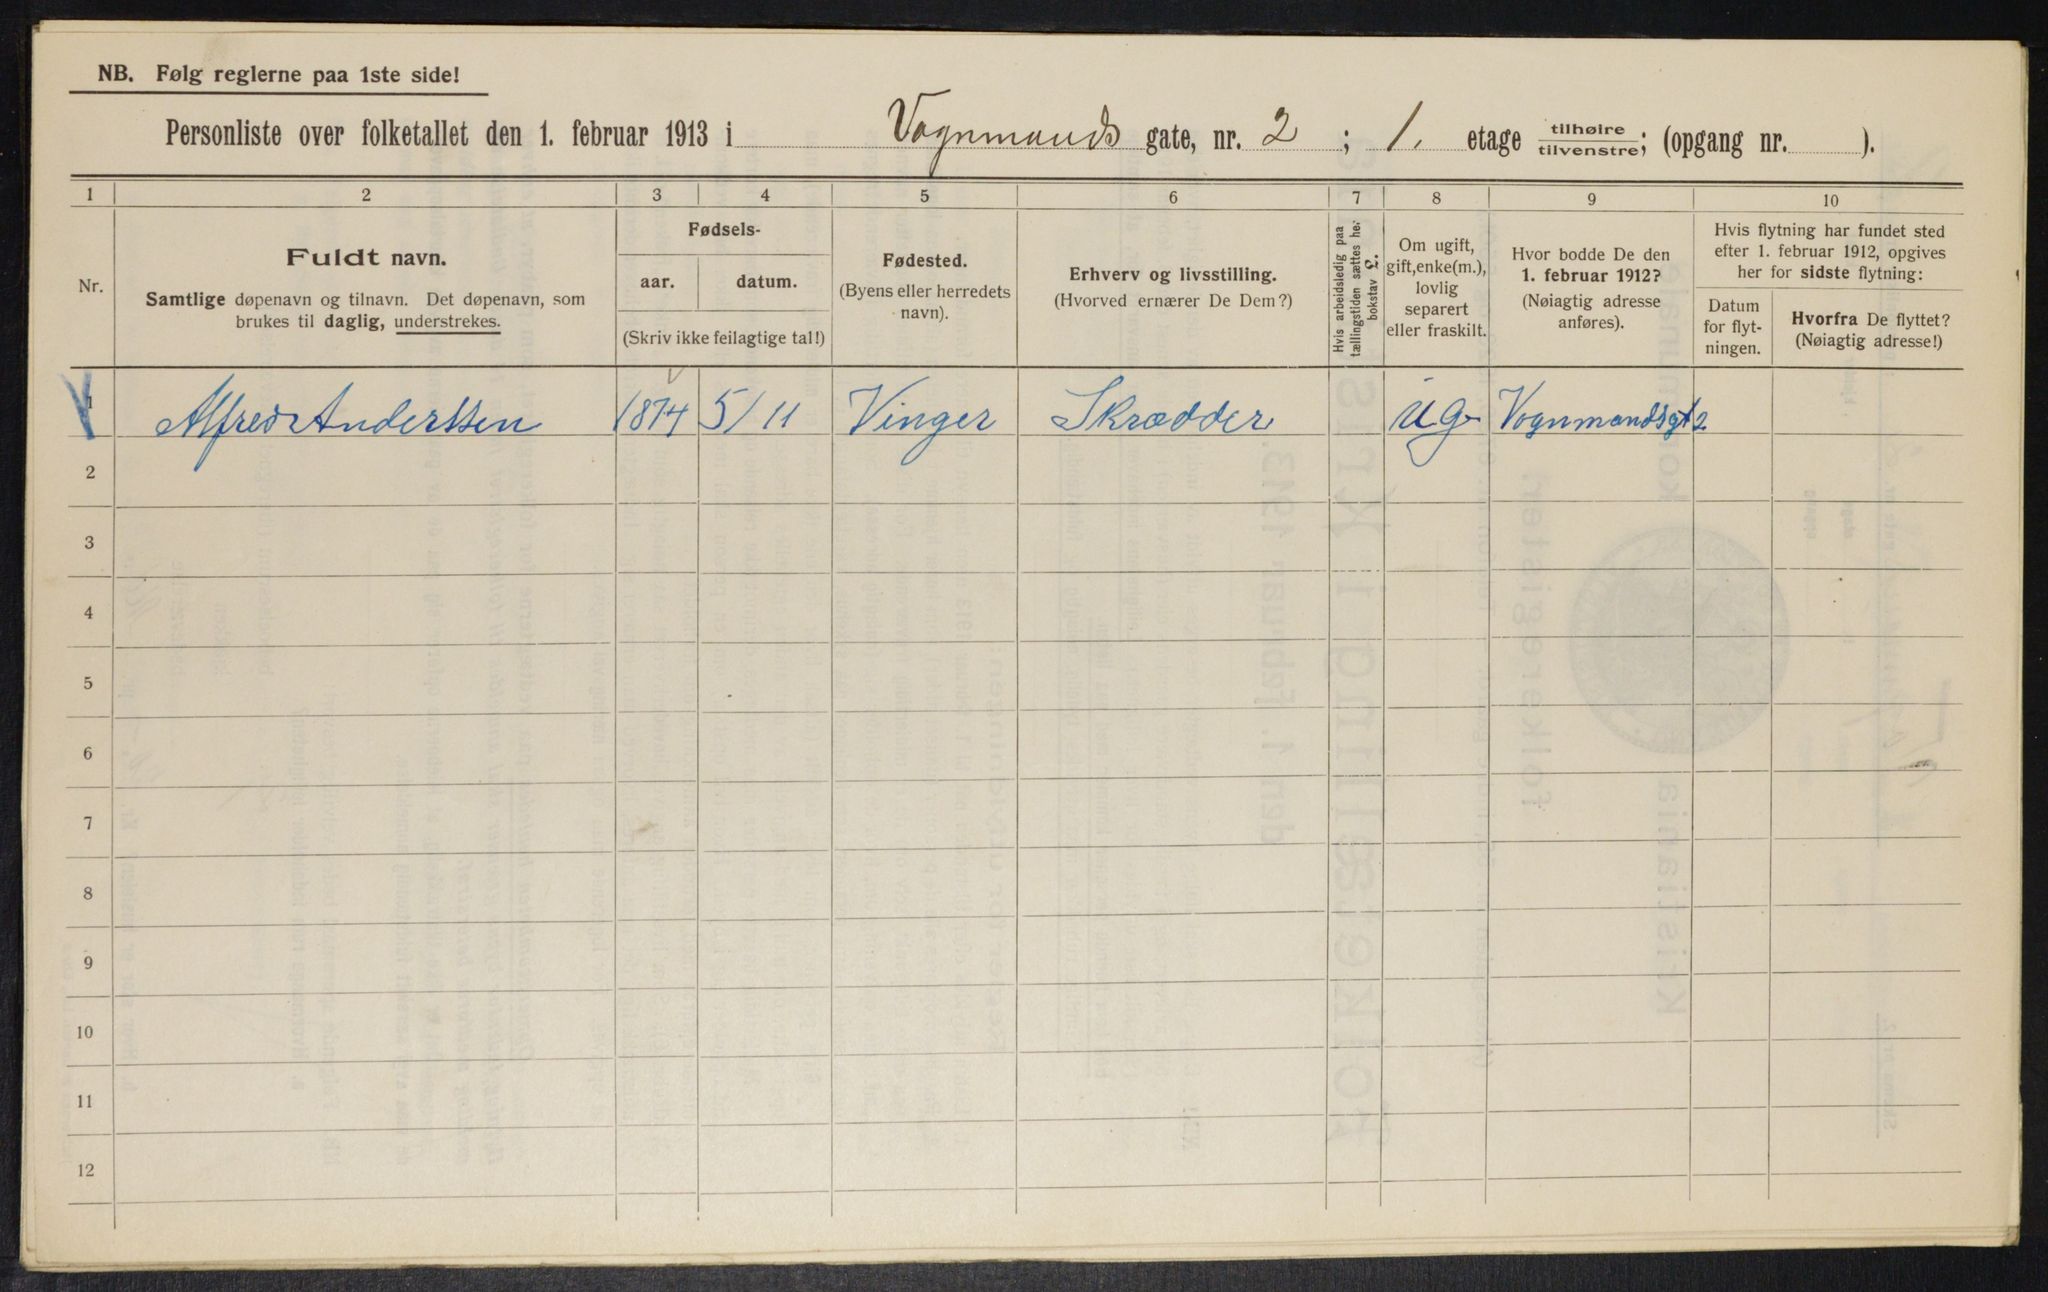 NB. Følg reglerne paa 1ste side!
Personliste over folketallet den 1. februar 1913 i Vognmands gate, nr. 2 ; 1. etage tilhøire tilvenstre; (opgang nr. ).
1 2 3 4 5 6 7 8 9 10
Nr.
Fuldt navn.
Samtlige døpenavn og tilnavn. Det døpenavn, som
brukes til daglig, understrekes.
Fødsels-
aar. datum.
(Skriv ikke feilagtige tal!)
Fødested.
(Byens eller herredets
navn).
Erhverv og livsstilling.
(Hvorved ernærer De Dem?)
Hvis arbeidsledig paa
tællingstiden sættes her
bokstav L.
Om ugift,
gift, enke(m.),
lovlig
separert
eller fraskilt.
Hvor bodde De den
1. februar 1912?
(Nøiagtig adresse
anføres).
Hvis flytning har fundet sted
efter 1. februar 1912, opgives
her for sidste flytning:
Datum
for flyt-
ningen.
Hvorfra De flyttet?
(Nøiagtig adresse!)
1 Alfred Anderssen 1874 5/11 Vinger Skrædder ug Vognmandsgt 2
2
3
4
5
6
7
8
9
10
11
12